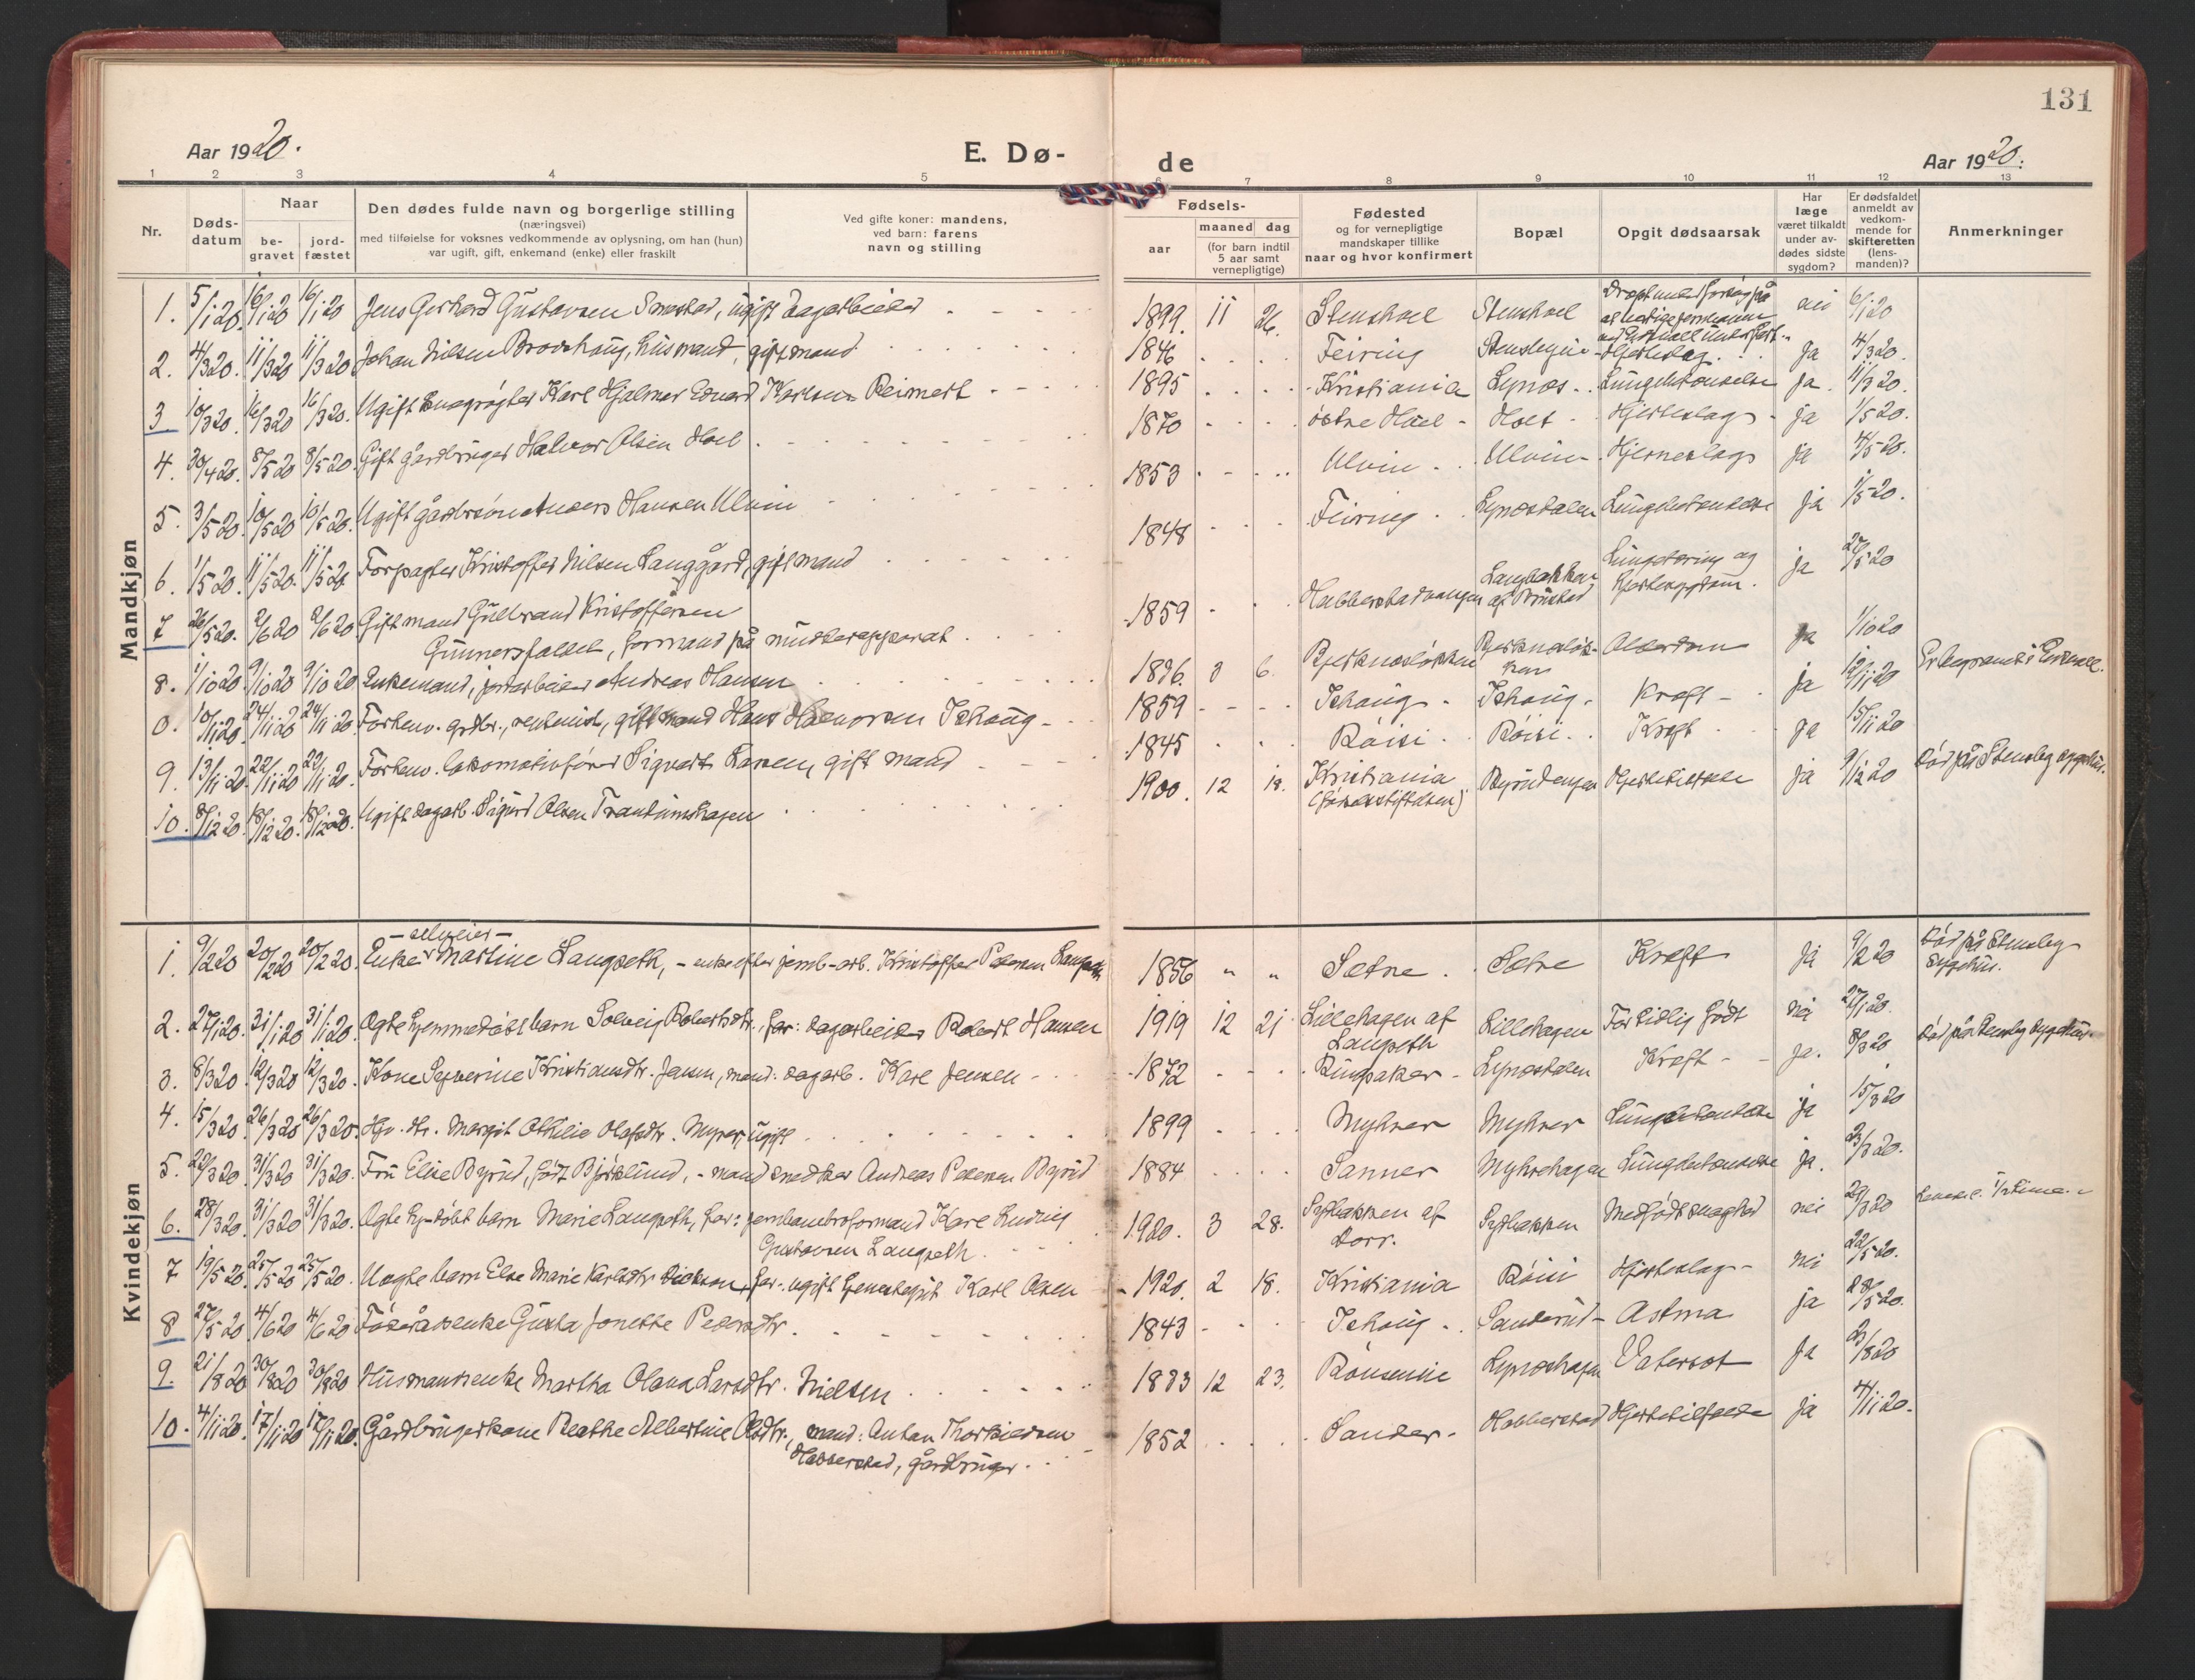 131
Aar 1920.
E. Dø-
de
Aar 1920.
1 2 3 4 5
6 7 8 9 10 11 12 13
Nr.
Døds-
datum
Naar
be-
gravet
jord-
fæstet
Den dødes fulde navn og borgerlige stilling
(næringsvei)
med tilføielse for voksnes vedkommende av oplysning, om han (hun)
var ugift, gift, enkemand (enke) eller fraskilt
Ved gifte koner: mandens,
ved barn: farens
navn og stilling
Fødsels-
aar
maaned dag
(for barn indtil
5 aar samt
vernepligtige)
Fødested
og for vernepligtige
mandskaper tillike
naar og hvor konfirmert
Bopæl
Opgit dødsaarsak
Har
læge
været tilkaldt
under av-
dødes sidste
sygdom?
Er dødsfaldet
anmeldt av
vedkom-
mende for
skifteretten
(lens-
manden)?
Anmerkninger
Mandkjøn
1. 5/1 20. 16/1 20 16/1 20 Jens Gerhard Gustavsen, ugift dagarbeider
1899. 11 26. Stenshoel Stenshoel nei 6/1 20
2. 4/3 20. 11/3 20 11/3 20 Johan Nilsen Brovshaug, husmand, gift mand
1846 Feiring Hjerteslag. Ja 4/3 20.
3 10/3 20. 16/3 20 16/3 20. Ugift Karl Hjalmar Edvard Karlsen Reimert
1895 Kristiania Lynæs Lungebetændelse Ja. 11/3 20.
4. 30/4 20. 8/5 20 8/5 20. Gift gårdbruger Halvor Olsen Hoel
1870 østre Hoel Hoel Hjerteslag ja 1/5 20.
5. 3/5 20. 10/5 20 10/5 20. Ugift gårdbr.søn Anders Hansen Ulvin
1853 Ulvin Ulvin Hjerneslag ja 4/5 20.
6. 1/5 20. 11/5 20. 11/5 20 Forpagter Kristoffer Nilsen Langgård, gift mand
1848 Feiring Lynæsdalen Lungebetændelse ja 1/5 20.
7 26/5 20. 2/6 20 2/6 20 Gift mand Gulbrand Kristoffersen
Gunnersfaldet, formand på mudderapparat
1859 Habberstadvangen Langbakken Lungetæring og ja 27/5 20
af Hjertesygdom.
8. 1/10 20. 9/10 20 9/10 20 Enkemand, jordarbeider Andreas Hansen
1836. 3 6. Bjerknesløkken Bjerknesløk- Alderdom Ja 1/10 20
ken Er begravet i Eidsvoll.
10/11 20. 24/11 20 24/11 20 Forhenv. grdbr., gift mand Hans Halvorsen Ishaug
1859 Ishaug Ishaug Kræft ja 12/11 20
9. 13/11 20. 22/11 20 22/11 20. Forhenv. lokomotivfører Sigvart Larsen, gift mand
1845 Røisi Røisi Kræft ja 15/11 20
10. 8/12 20. 18/12 20. 18/12 20. Ugift dagarb. Sigurd Olsen Trantumshagen
1900. 12 18. Kristiania Byrudengen Hjertelidelse ja 9/12 20 Død på Stensby sygehus.
(Fødselsstiftelsen)
Kvindekjøn
- selveier -
1. 9/2 20 20/2 20 20/2 20. Enke Martine Langseth, - enke efter jernb-arb. Kristoffer Pedersen Langseth
1856 " " Sætre Sætre Kræft Ja 9/2 20 Død på Stensby
Sygehus.
2. 27/1 20. 31/1 20 31/1 20. Ægte hjemmedøbt barn Solveig Robertsdtr., far: dagarbeider Robert Hansen
1919 12 21 Lillehagen af Lillehagen For tidlig født nei 27/1 20.
Langseth
3. 8/3 20. 12/3 20 12/3 20. Kone Syverine Kristiansdtr. Jensen, mand: dagarb. Karl Jensen
1872 Ringsaker Lynæsdalen Kræft ja. 8/3 20 Død på Stensby Sygehus.
4. 15/3 20. 26/3 20 26/3 20. Margit Othilie Olafsdtr. Myrer, ugift
1899 Myhrer Myhrer Lungebetændelse ja 15/3 20
5. 22/3 20. 31/3 20 31/3 20. Fru Elise Byrud, født Bjørklund, - mand snedker Andreas Pedersen Byrud
1884 Sanner Myhrehagen Lungebetændelse ja. 23/3 20.
6. 28/3 20. 31/3 20 31/3 20. Ægte hj-døbt barn Marie Langseth, far: jernbanebroformand Karl Ludvig
Gustavsen Langseth.
1920. 3 28. Sydbakken af Sydbakken Medfødt svaghed nei 29/3 20 Levede c. 1/2 time.
Dorr.
7 19/5 20. 25/5 20 25/5 20. Uægte barn Else Marie Karlsdtr., far: ugift Karl Olsen
1920. 2 18. Kristiania Røisi Hjerteslag nei 22/5 20.
8 27/5 20 4/6 20 4/6 20 Føderådsenke Gusta Jonette Pedersdtr.
1843 Ishaug Sanderud Astma ja 28/5 20.
9. 21/8 20 30/8 20 30/8 20 Husmandsenke Martha Olava Larsdtr. Nielsen
1833 12 23. Lynæshagen Vatersot Ja 23/8 20
10. 4/11 20. 17/11 20 17/11 20. Gårdbrugerkone Beathe Albertine Olsdtr., mand: Anton Thorkildsen
Habberstad, gårdbruger.
1852 Sander Habberstad Hjertelidelse ja 4/11 20.